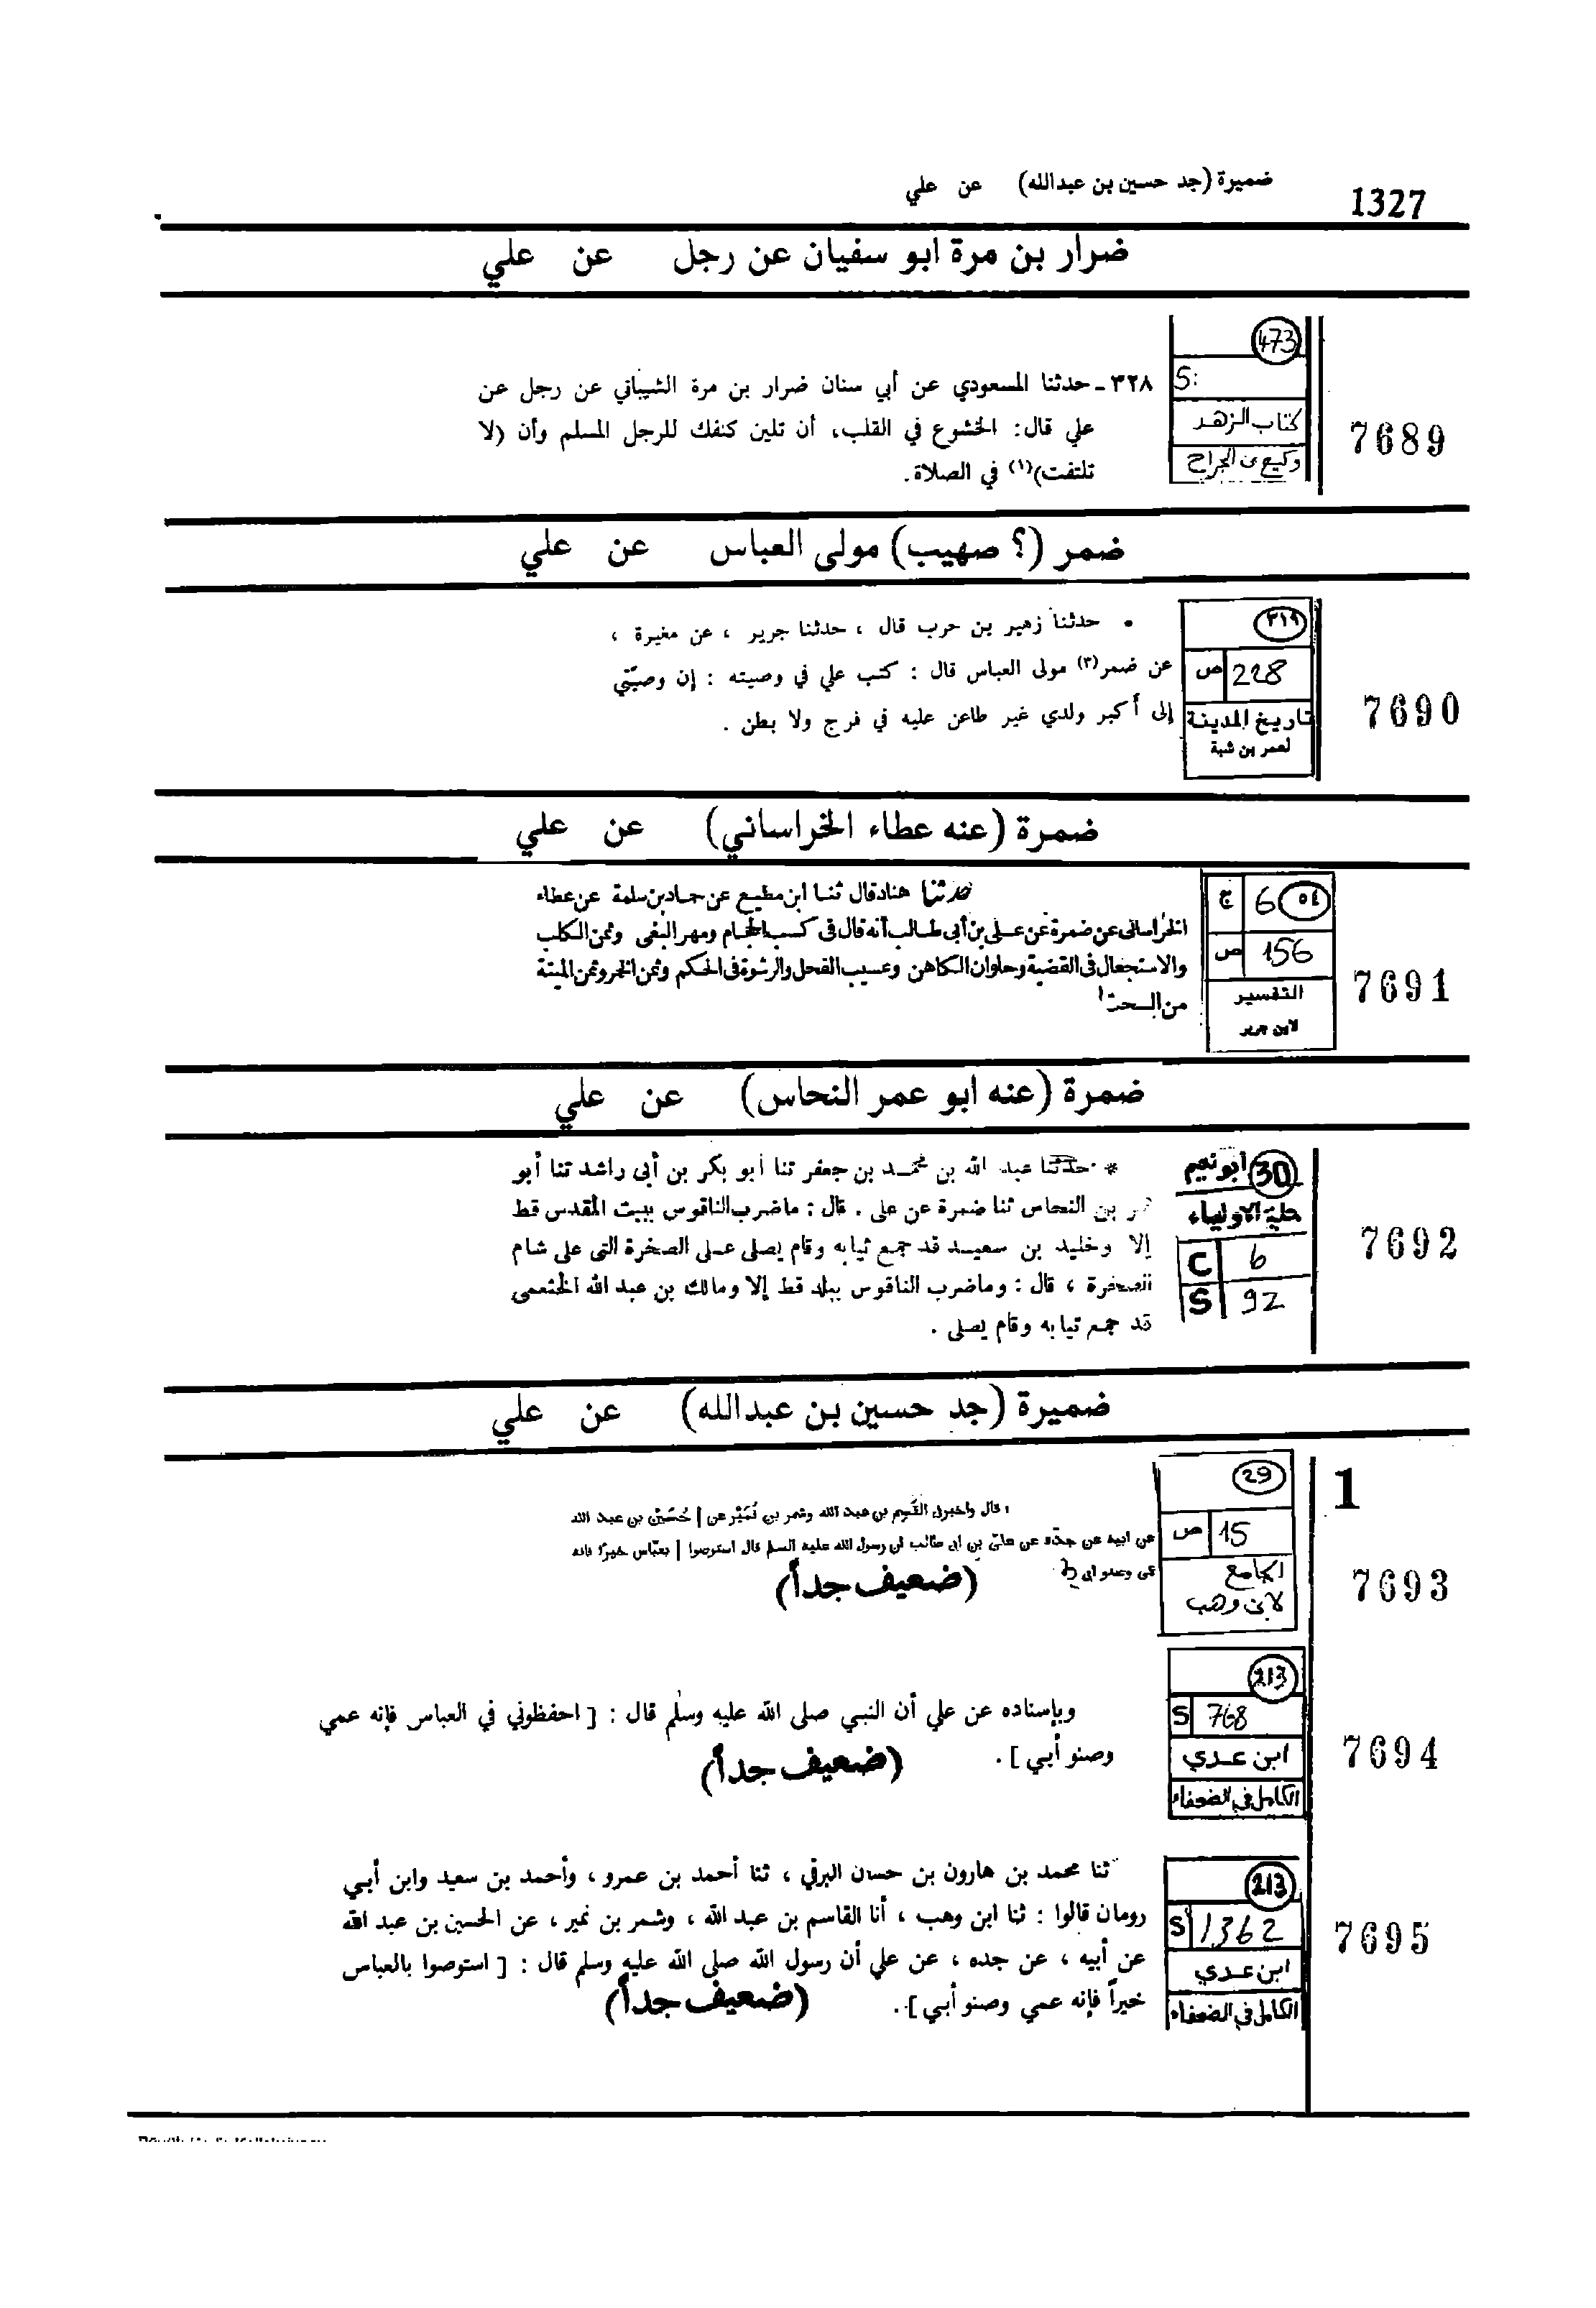 ضميرة (جد حسين بن عبدالله) عن علي
1327
ضرار بن مرة ابو سفيان عن رجل عن علي
473
S:
كتاب الزهد
وكيع بن الجراح
7689
٣٢٨ - حدثنا المسعودي عن أبي سنان ضرار بن مرة الشيباني عن رجل عن
علي قال: الخشوع في القلب، أن تلين كنفك للرجل المسلم وأن (لا
تلتفت)(١) في الصلاة.
ضمر (؟ صهيب) مولى العباس عن علي
٣١٩
ص 228
تاريخ المدينة
لعمر بن شبة
7690
• حدثنا زهير بن حرب قال ، حدثنا جرير ، عن مغيرة ،
عن ضمر(٣) مولى العباس قال : كتب علي في وصيته : إن وصيّتي
إلى أكبر ولدي غير طاعن عليه في فرج ولا بطن .
ضمرة (عنه عطاء الخراساني) عن علي
٥٤
ج 6
ص 156
التفسير
لابن جرير
7691
حدثنا هناد قال ثنا ابن مطيع عن حماد بن سلمة عن عطاء
الخراسانى عن ضمرة عن على بن أبى طالب أنه قال فى كسب الحجام ومهر البغى وثمن الكلب
والاستجعال فى القضية وحلوان الكاهن وعسيب الفحل والرشوة فى الحكم وثمن الخر وثمن الميتة
من السحت
ضمرة (عنه ابو عمر النحاس) عن علي
30
ابو نعيم
حلية الاولياء
C 6
S 92
7692
* حدثنا عبد الله بن محمد بن جعفر ثنا أبو بكر بن أبى راشد ثنا أبو
بن النحاس ثنا ضمرة عن على . قال : ماضرب الناقوس ببيت المقدس قط
إلا وخليد بن سعيد قد جمع ثيابه وقام يصلى على الصخرة التى على شام
الصخرة ، قال : وماضرب الناقوس ببلد قط إلا ومالك بن عبد الله الخثعمى
قد جمع ثيابه وقام يصلى .
ضميرة (جد حسين بن عبدالله) عن علي
1
29
ص 15
الجامع
لابن وهب
7693
قال واخبرنى القسم بن عبد الله وشمر بن نُمَيْر عن | حُسَيْن بن عبد الله
عن ابيه عن جدّه عن علىّ بن ابى طالب ان رسول الله عليه السلم قال استوصوا | بعبّاس خيرًا فانه
عمى وصنو ابى
(ضعيف جداً)
213
S 768
ابن عدي
الكامل في الضعفاء
7694
وبإسناده عن علي أن النبي صلى الله عليه وسلم قال : [ احفظوني في العباس فإنه عمي
وصنو أبي ] .
(ضعيف جداً)
213
S 1362
ابن عدي
الكامل في الضعفاء
7695
ثنا محمد بن هارون بن حسان البرقي ، ثنا أحمد بن عمرو ، وأحمد بن سعيد وابن أبي
رومان قالوا : ثنا ابن وهب ، أنا القاسم بن عبد الله ، وشمر بن نمير ، عن الحسين بن عبد الله
عن أبيه ، عن جده ، عن علي أن رسول الله صلى الله عليه وسلم قال : [ استوصوا بالعباس
خيراً فإنه عمي وصنو أبي ] .
(ضعيف جداً)